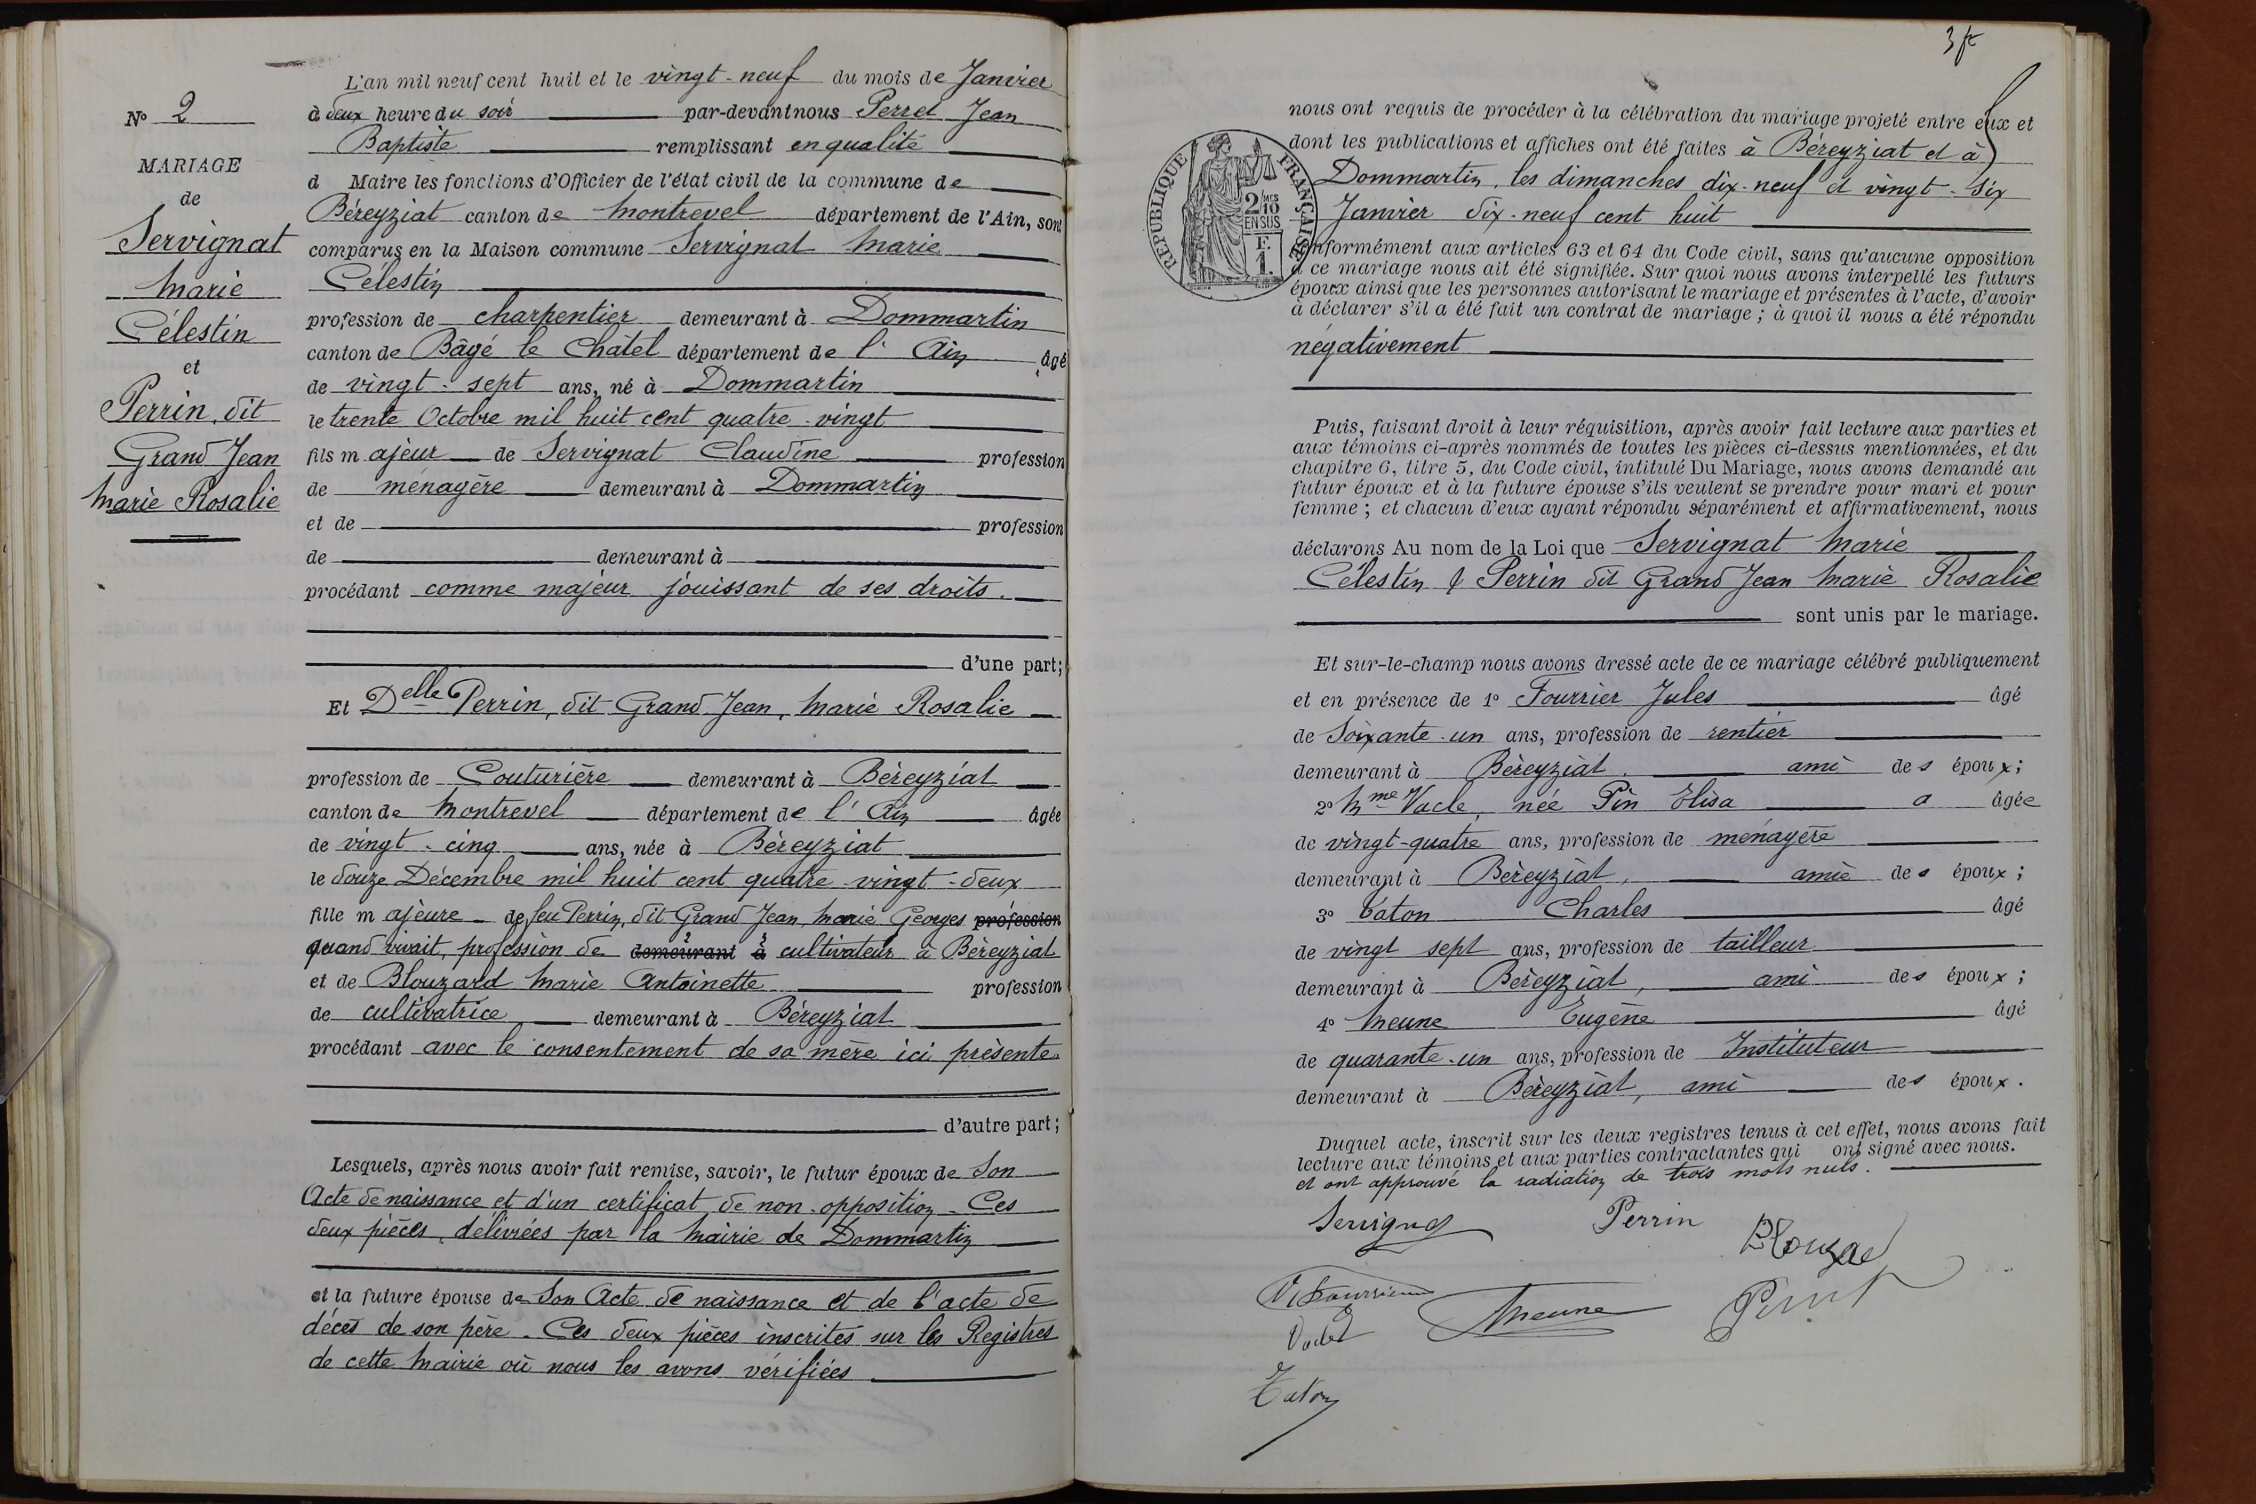 N° 2
MARIAGE
de
Servignat
Marie
Célestin
et
Perrin, dit
Grand Jean
Marie Rosalie
L'an mil neuf cent huit et le vingt-neuf du mois de Janvier
à deux heure du soir par-devant nous Perret Jean
Baptiste remplissant en qualité
d Maire les fonctions d'Officier de l'état civil de la commune de
Béreyziat canton de Montrevel département de l'Ain, sont
comparus en la Maison commune Servignat Marie
Célestin
profession de charpentier demeurant à Dommartin
canton de Bâgé le Chatel département de l'Ain âgé
de vingt-sept ans, né à Dommartin
le trente Octobre mil huit cent quatre-vingt
fils majeur de Servignat Claudine profession
de ménagère demeurant à Dommartin
et de profession
de demeurant à
procédant comme majeur jouissant de ses droits.
d'une part;
Et Delle Perrin, dit Grand Jean, Marie Rosalie
profession de Couturière demeurant à Béreyziat
canton de Montrevel département de l'Ain âgée
de vingt-cinq ans, née à Béreyziat
le douze Décembre mil huit cent quatre-vingt-deux
fille majeure de feu Perrin, dit Grand Jean, Marie Georges profession
quand vivait, profession de demeurant à cultivateur à Béreyziat
et de Blouzard Marie Antoinette profession
de cultivatrice demeurant à Béreyziat
procédant avec le consentement de sa mère ici présente.
d'autre part;
Lesquels, après nous avoir fait remise, savoir, le futur époux de Son
Acte de naissance et d'un certificat de non-opposition - Ces
deux pièces, délivrées par la Mairie de Dommartin
et la future épouse de Son Acte de naissance et de l'acte de
décès de son père. Ces deux pièces inscrites sur les Registres
de cette Mairie où nous les avons vérifiées
3 fr
nous ont requis de procéder à la célébration du mariage projeté entre eux et
dont les publications et affiches ont été faites à Béreyziat et à
Dommartin, les dimanches dix-neuf et vingt-six
Janvier dix-neuf cent huit
RÉPUBLIQUE FRANÇAISE
2/10 MES
EN SUS
F.
1.
conformément aux articles 63 et 64 du Code civil, sans qu'aucune opposition
à ce mariage nous ait été signifiée. Sur quoi nous avons interpellé les futurs
époux ainsi que les personnes autorisant le mariage et présentes à l'acte, d'avoir
à déclarer s'il a été fait un contrat de mariage ; à quoi il nous a été répondu
négativement
Puis, faisant droit à leur réquisition, après avoir fait lecture aux parties et
aux témoins ci-après nommés de toutes les pièces ci-dessus mentionnées, et du
chapitre 6, titre 5, du Code civil, intitulé Du Mariage, nous avons demandé au
futur époux et à la future épouse s'ils veulent se prendre pour mari et pour
femme ; et chacun d'eux ayant répondu séparément et affirmativement, nous
déclarons Au nom de la Loi que Servignat Marie
Célestin & Perrin dit Grand Jean Marie Rosalie
sont unis par le mariage.
Et sur-le-champ nous avons dressé acte de ce mariage célébré publiquement
et en présence de 1° Fourrier Jules âgé
de Soixante-un ans, profession de rentier
demeurant à Béreyziat. ami des époux;
2° Mme Vacle, née Pin Elisa a âgée
de vingt-quatre ans, profession de ménagère
demeurant à Béreyziat, amie des époux ;
3° Caton Charles âgé
de vingt sept ans, profession de tailleur
demeurant à Béreyziat, ami des époux ;
4° Meune Eugène âgé
de quarante-un ans, profession de Instituteur
demeurant à Béreyziat, ami des époux.
Duquel acte, inscrit sur les deux registres tenus à cet effet, nous avons fait
lecture aux témoins et aux parties contractantes qui ont signé avec nous.
et ont approuvé la radiation de trois mots nuls.
Servignat Perrin
Meune Perret
Caton